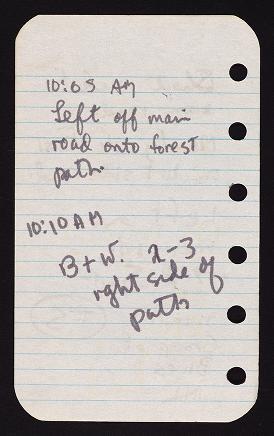 10:05 AM
Left off main
road onto forest
path.
10:10 AM
B+W. X-3
right side of
path